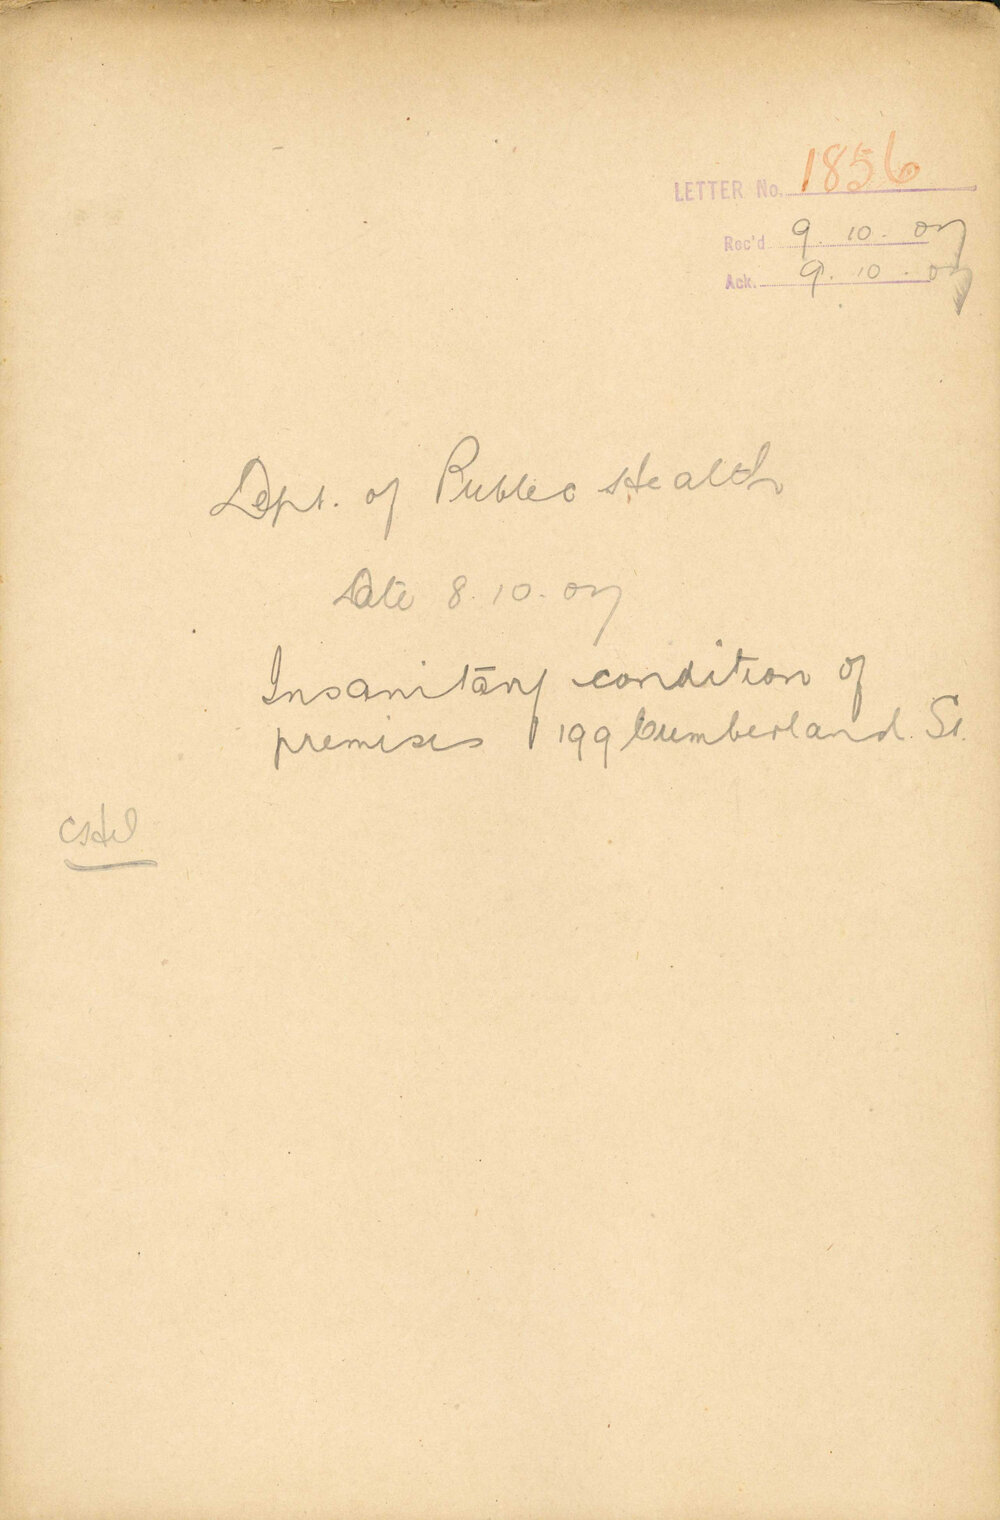 LETTER No. 1856
Rec'd 9.10.07
Ack. 9.10.07
Dept. of Public Health
Date 8.10.07
Insanitary condition of
premises 199 Cumberland St.